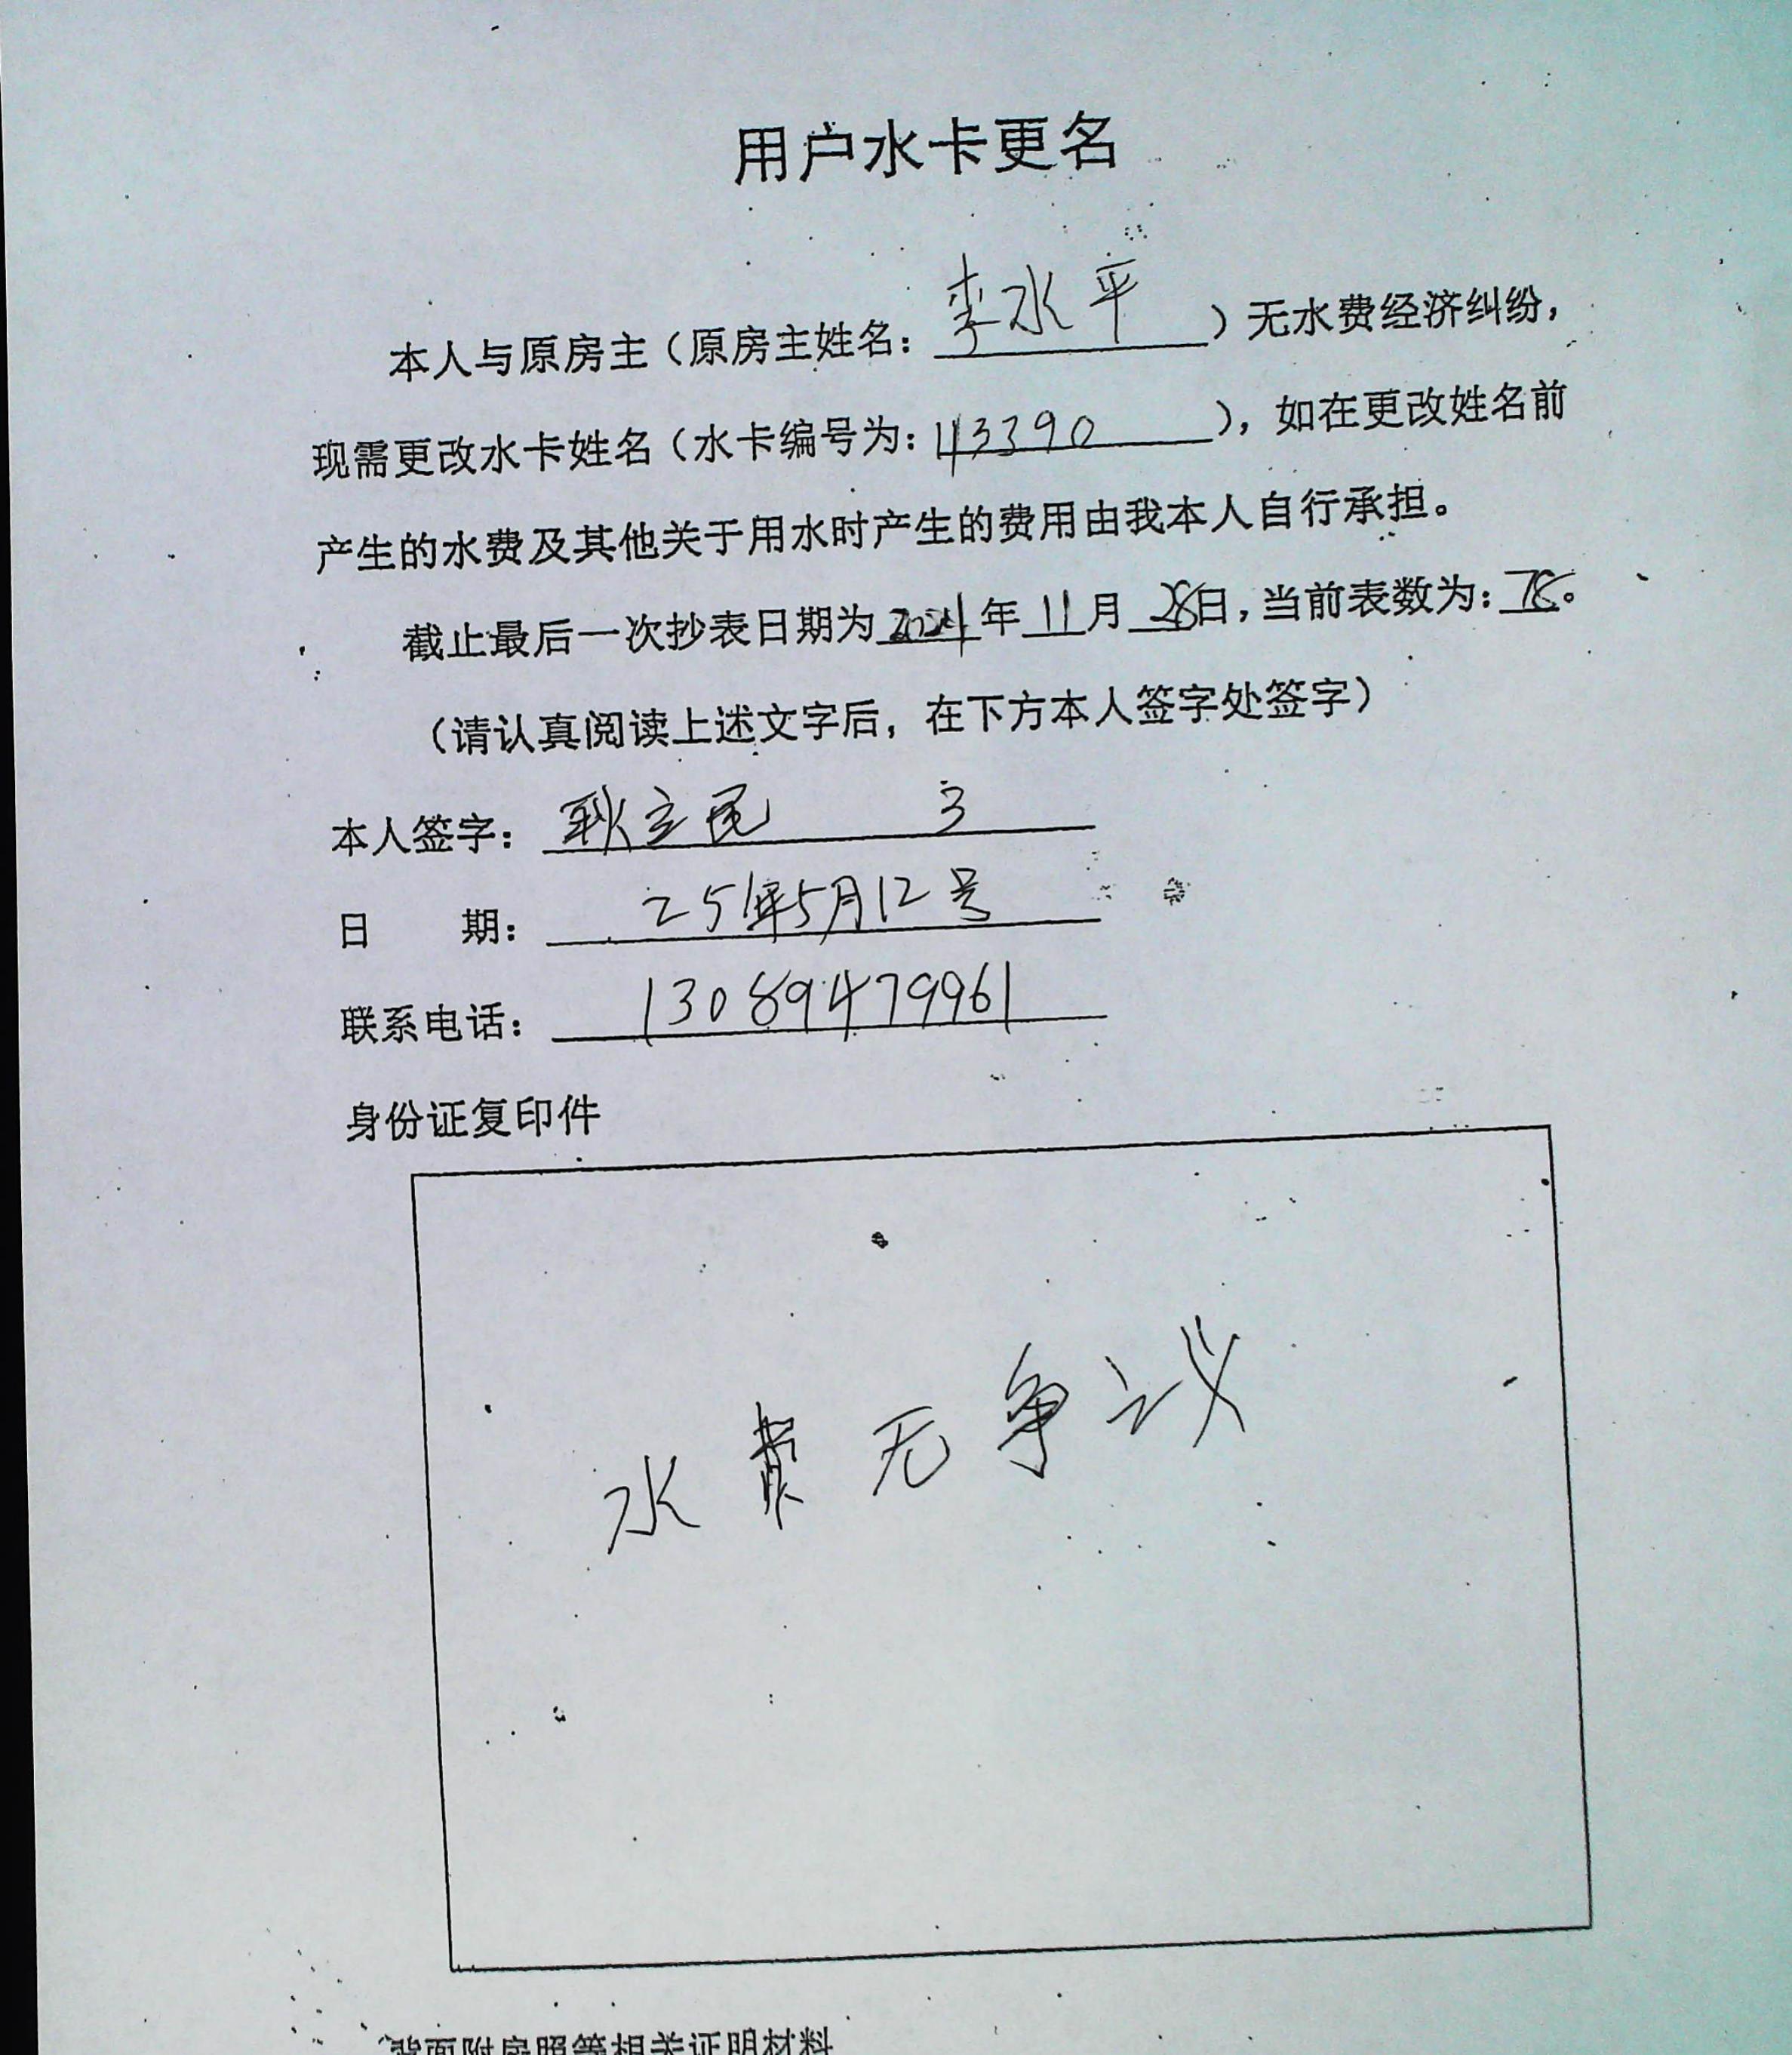 用户水卡更名
本人与原房主（原房主姓名：李水平）无水费经济纠纷，
现需更改水卡姓名（水卡编号为：43390），如在更改姓名前
产生的水费及其他关于用水时产生的费用由我本人自行承担。
截止最后一次抄表日期为2024年11月28日，当前表数为：78。
（请认真阅读上述文字后，在下方本人签字处签字）
本人签字：耿立民 3
日 期：25年5月12号
联系电话：13089479961
身份证复印件
水费无争议
背面附房照等相关证明材料